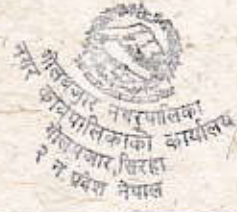 गोलबजार नगरपालिका
नगर कार्यपालिकाको कार्यालय
गोलबजार, सिरहा
२ नं प्रदेश नेपाल